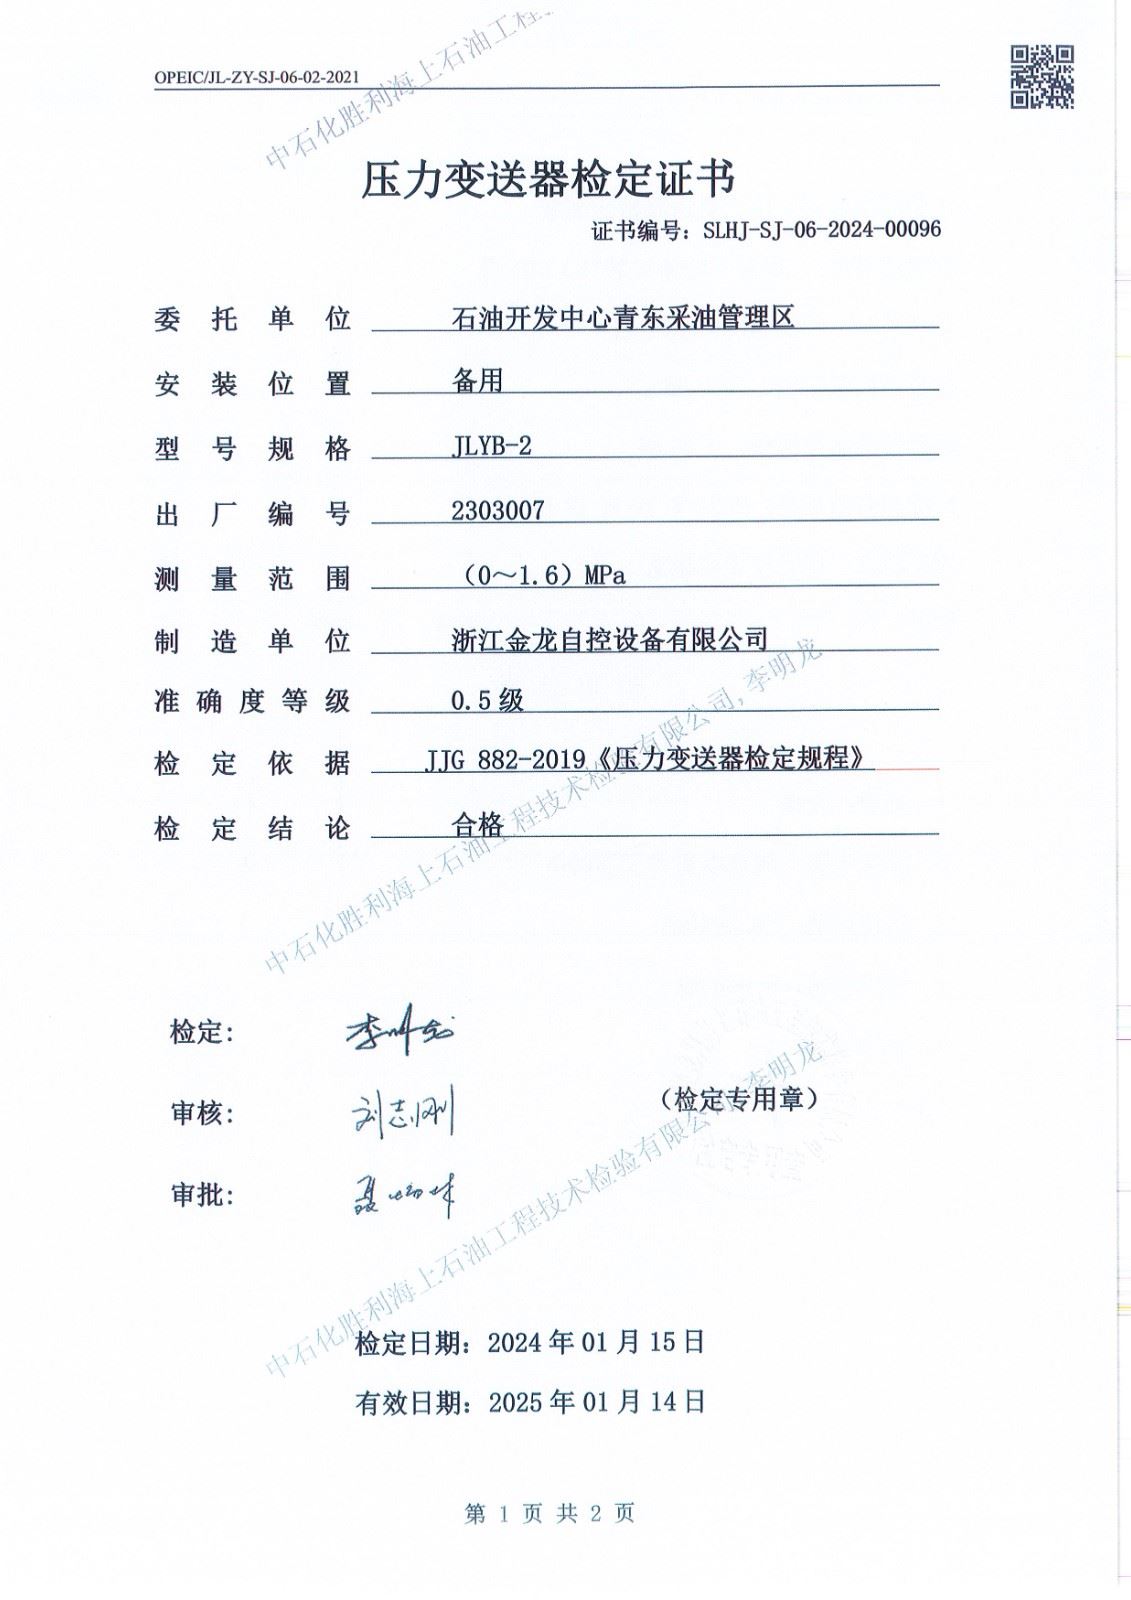 OPEIC/JL-ZY-SJ-06-02-2021
中石化胜利海上石油工程
压力变送器检定证书
证书编号：SLHJ-SJ-06-2024-00096
委托单位 石油开发中心青东采油管理区
安装位置 备用
型号规格 JLYB-2
出厂编号 2303007
测量范围 （0～1.6）MPa
制造单位 浙江金龙自控设备有限公司
准确度等级 0.5级
检定依据 JJG 882-2019《压力变送器检定规程》
检定结论 合格
中石化胜利海上石油工程技术检验有限公司,李明龙
检定： 李明龙
审核： 刘志刚
（检定专用章）
审批：
中石化胜利海上石油工程技术检验有限公司,李明龙
检定日期：2024年01月15日
有效日期：2025年01月14日
第 1 页 共 2 页